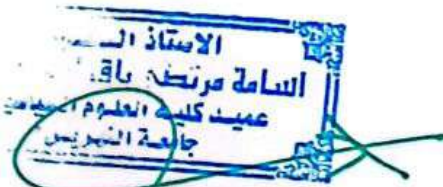 الاستاذ
اسامة مرتضى باقر
عميد كلية العلوم السياسية
جامعة النهرين